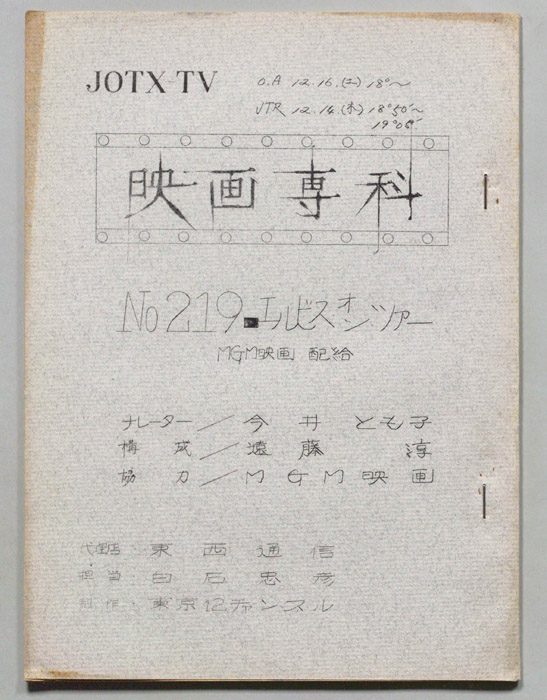 JOTX-TV
O.A 12.16.(土) 18°~
VTR 12.14.(木) 18°50'~
19°05'
映画専科
No219.エルビスオンツアー
MGM映画 配給
ナレーター/今井とも子
構成/遠藤 淳
協力/MGM映画
代理店:東西通信
担当:白石忠彦
制作:東京12チャンネル